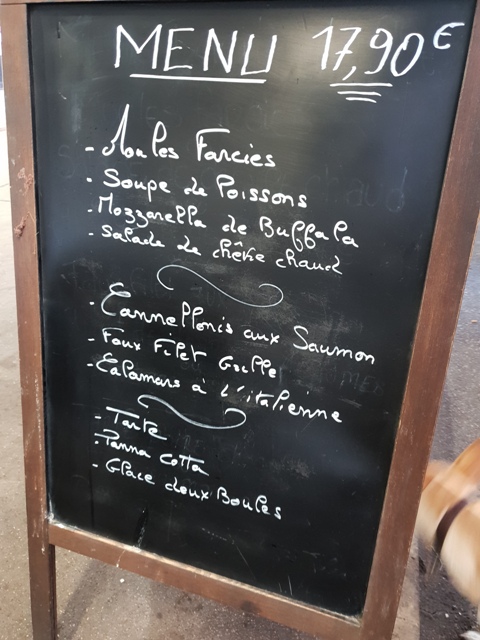 MENU 17,90€
- Moules Farcies
- Soupe de Poissons
- Mozzarella de Buffala
- Salade de chèvre chaud
- Cannellonis aux Saumon
- Faux Filet Grillé
- Calamars à l'italienne
- Tarte
- Panna Cotta
- Glace deux Boules